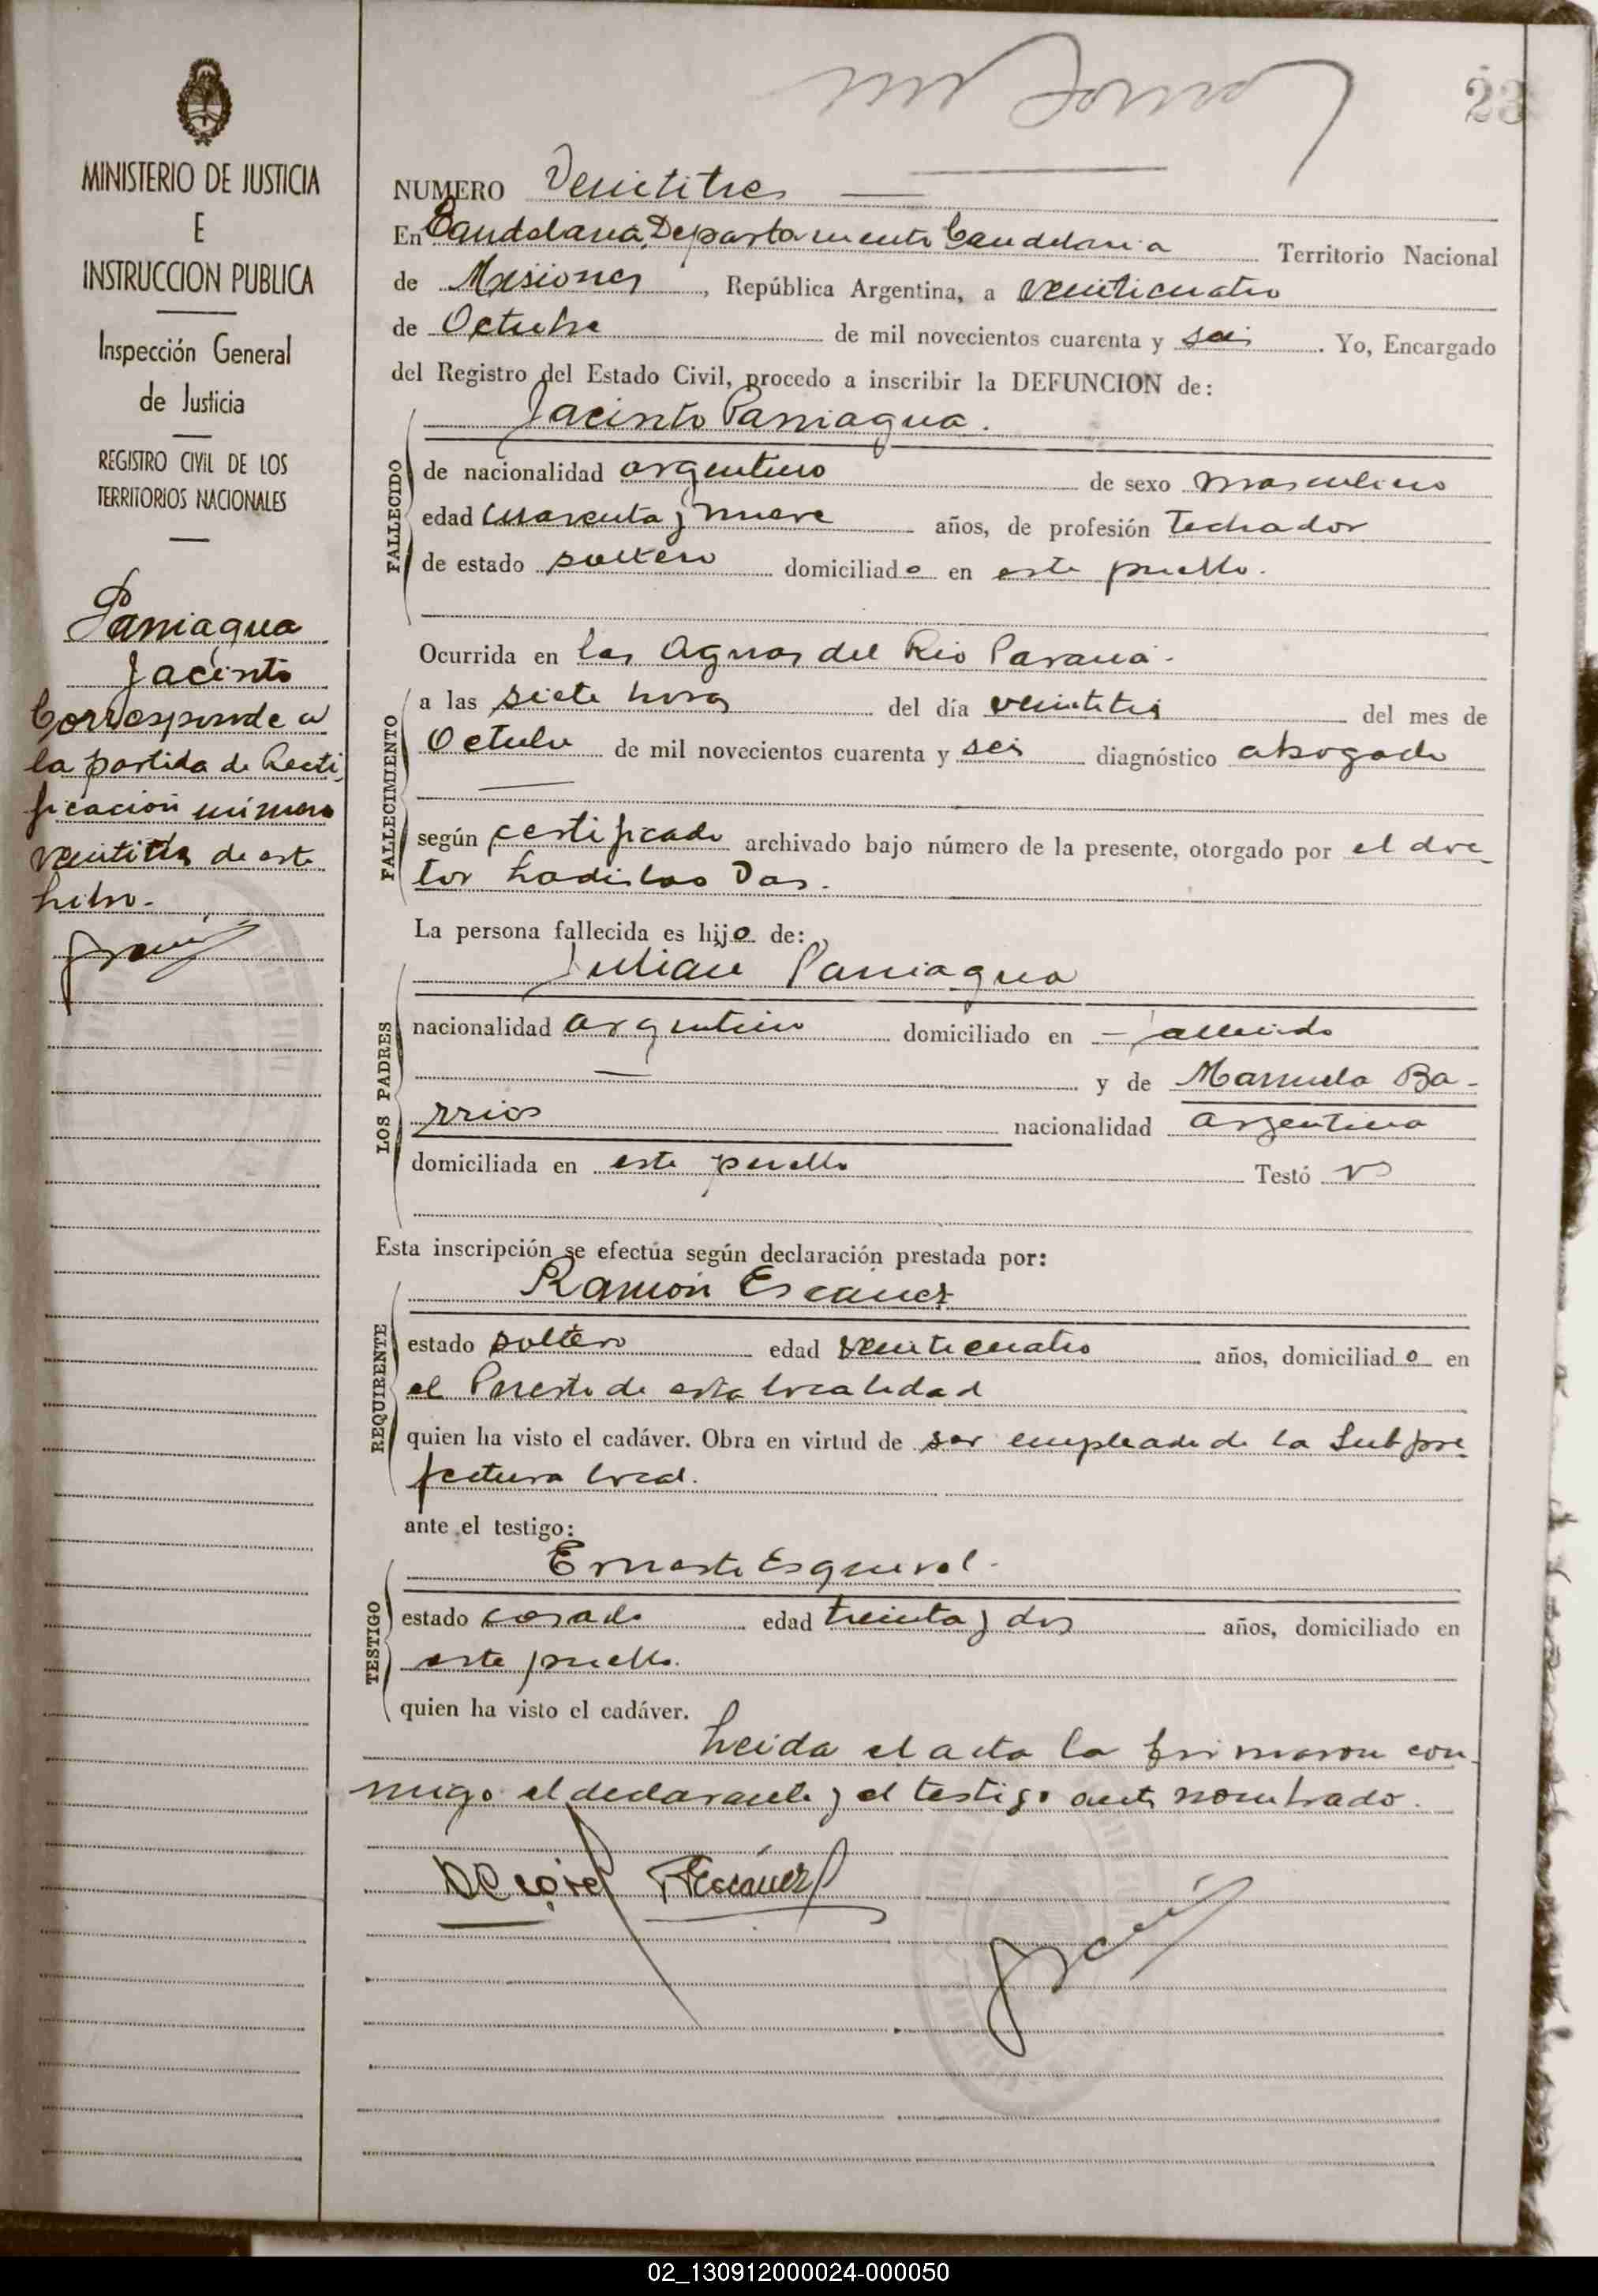 23
MINISTERIO DE JUSTICIA
E
INSTRUCCION PUBLICA
Inspección General
de Justicia
REGISTRO CIVIL DE LOS
TERRITORIOS NACIONALES
Paniagua
Jacinto
Corresponde a
la partida de Recti
ficación número
veintitrés de este
Libro.
NUMERO Veintitres
En Candelaria, Departamento Candelaria Territorio Nacional
de Misiones, República Argentina, a veinticuatro
de Octubre de mil novecientos cuarenta y seis. Yo, Encargado
del Registro del Estado Civil, procedo a inscribir la DEFUNCION de:
FALLECIDO
Jacinto Paniagua.
de nacionalidad argentino de sexo masculino
edad cuarenta y nueve años, de profesión Techador
de estado soltero domiciliado en este pueblo.
Ocurrida en las Aguas del Rio Paraná.
FALLECIMIENTO
a las siete horas del día veintitrés del mes de
Octubre de mil novecientos cuarenta y seis diagnóstico ahogado
según certificado archivado bajo número de la presente, otorgado por el doc
tor Ladislao
La persona fallecida es hijo de:
LOS PADRES
Julian Paniagua
nacionalidad argentino domiciliado en - fallecido
y de Manuela Ba-
rrios nacionalidad argentina
domiciliada en este pueblo Testó
Esta inscripción se efectúa según declaración prestada por:
REQUIRENTE
Ramón Escauez
estado soltero edad veinticuatro años, domiciliado en
el Puerto de esta localidad
quien ha visto el cadáver. Obra en virtud de ser empleado de la Subpre
fectura local.
ante el testigo:
TESTIGO
Ernesto Esquivel.
estado casado edad treinta y dos años, domiciliado en
este pueblo.
quien ha visto el cadáver.
Leida el acta la firmaron con-
migo el declarante y el testigo ante nombrado.
REscauez
02_130912000024-000050